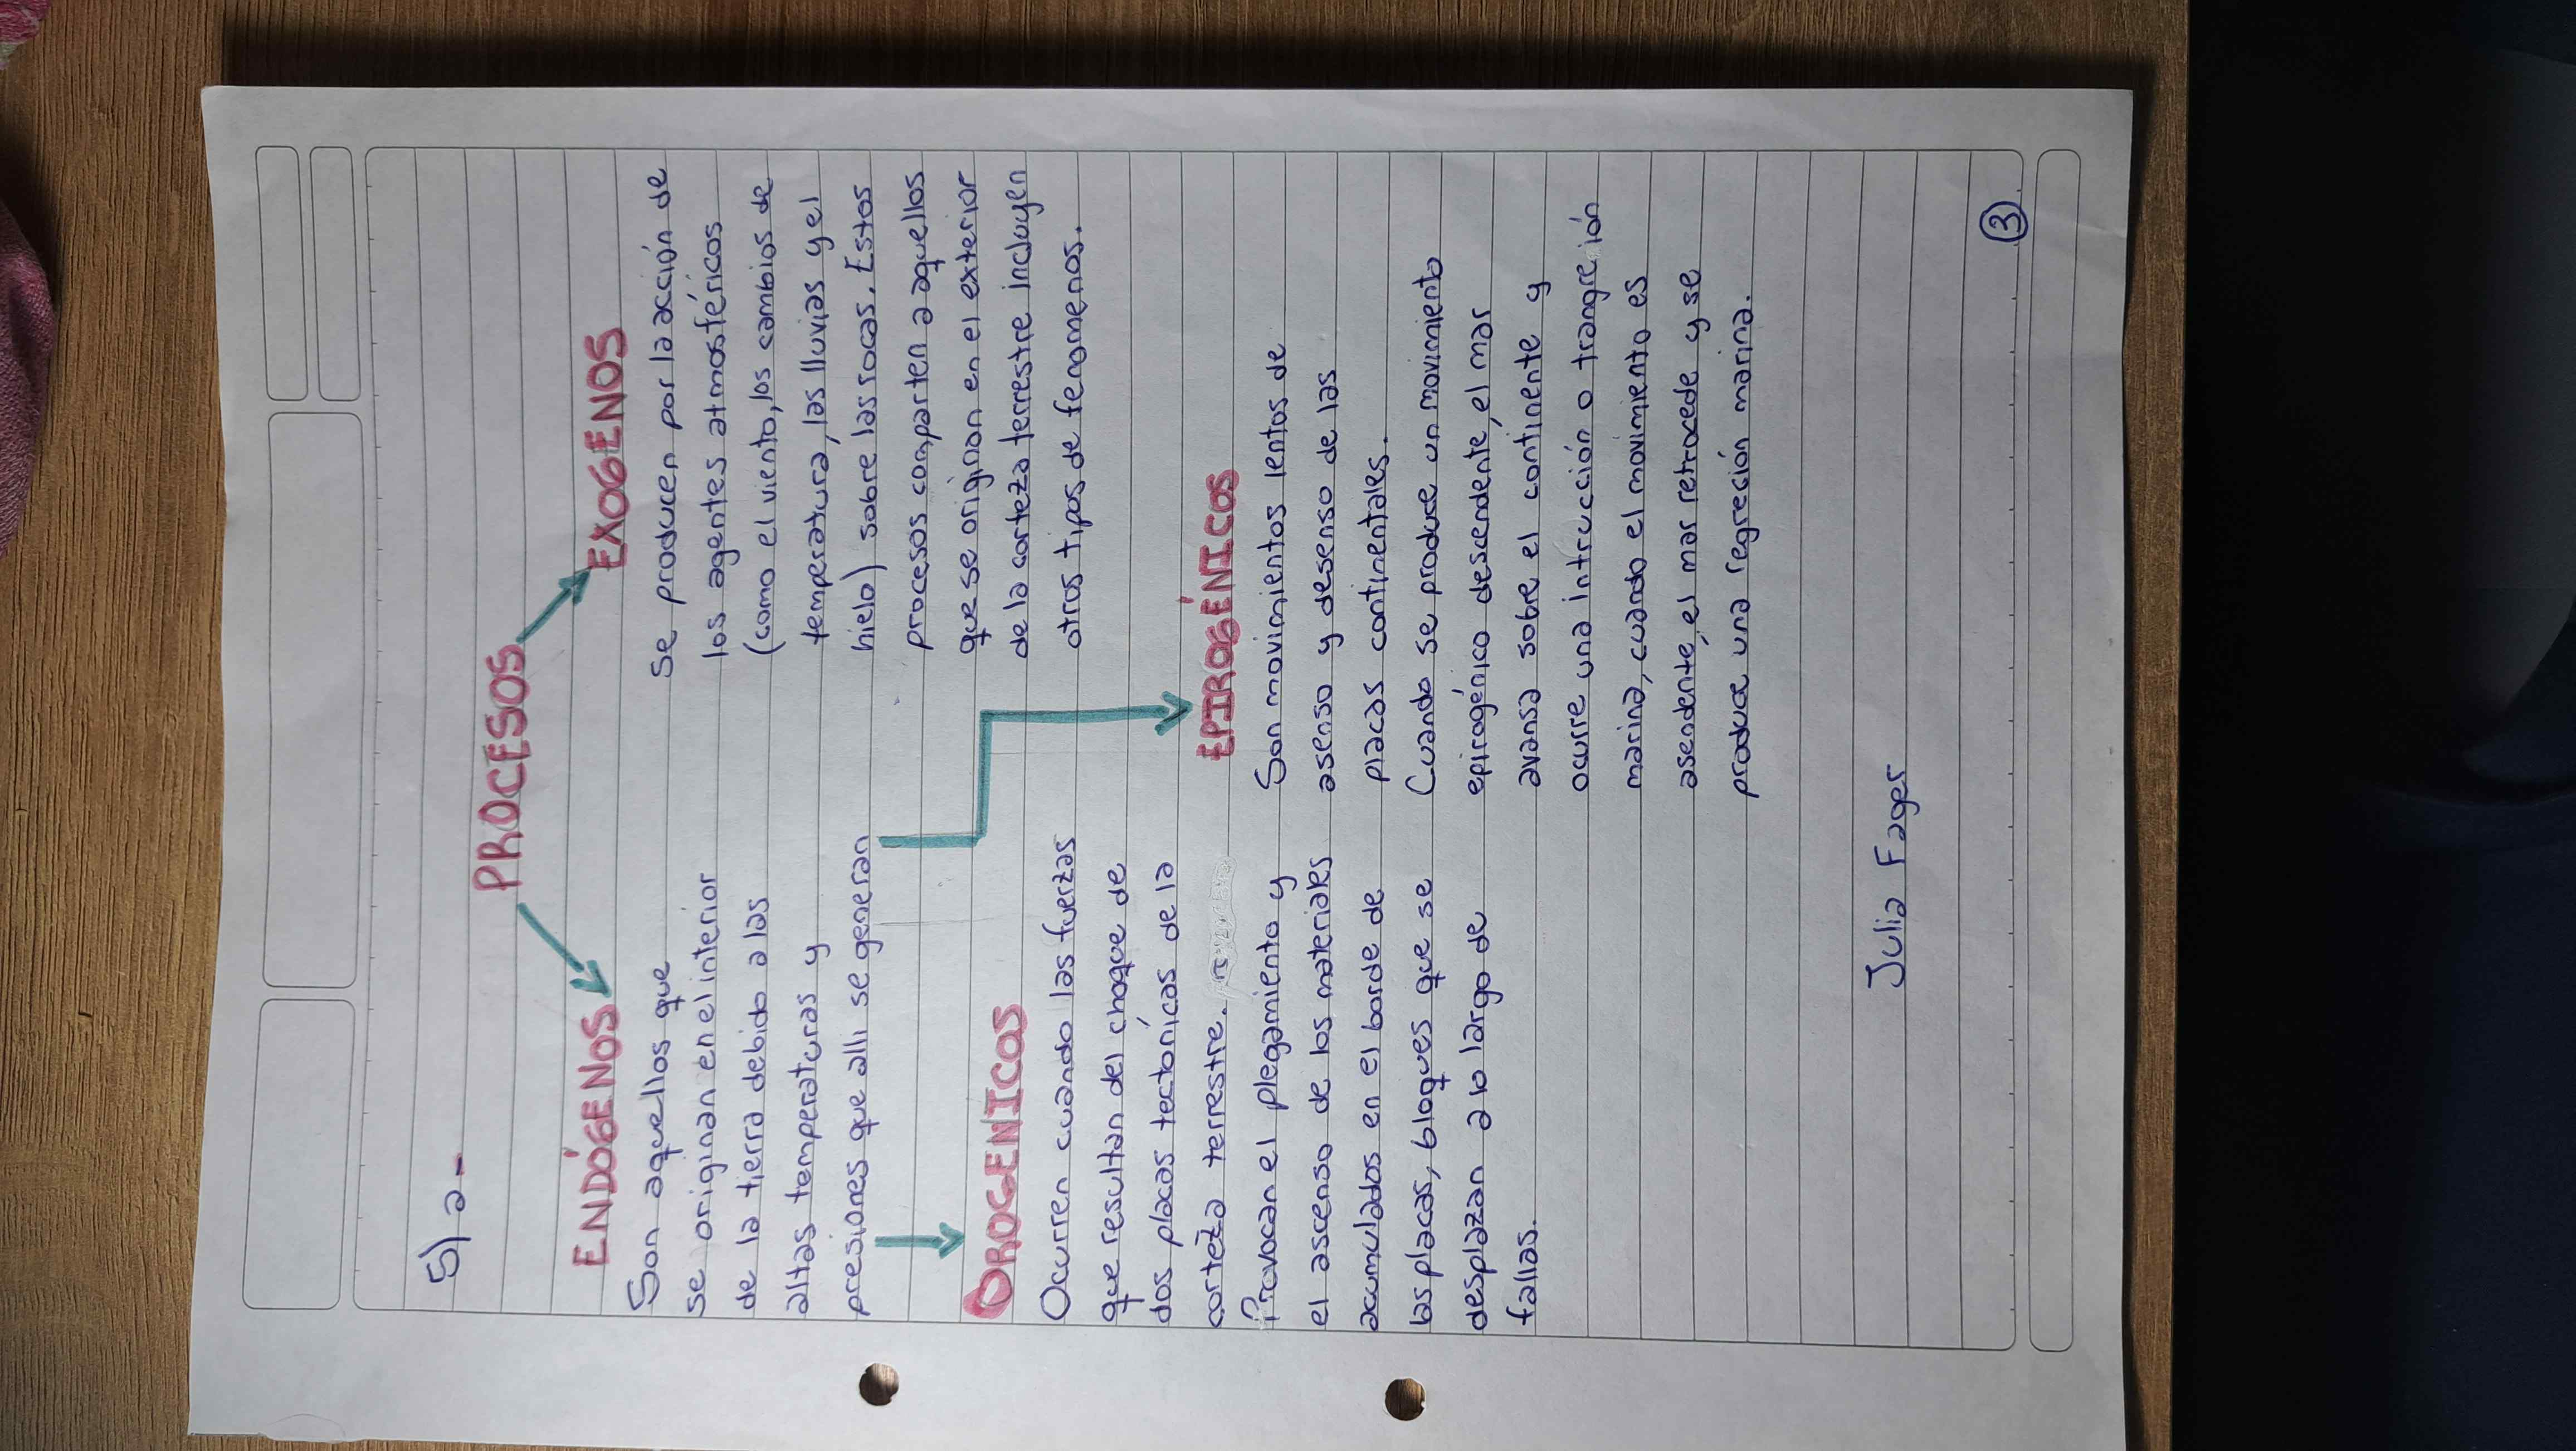 5) a-
PROCESOS
ENDÓGENOS
Son aquellos que
se originan en el interior
de la tierra debido a las
altas temperaturas y
presiones que alli se generan
EXOGENOS
Se producen por la acción de
los agentes atmosféricos
(como el viento, los cambios de
temperatura, las lluvias y el
hielo) sobre las rocas. Estos
procesos comparten a aquellos
que se originan en el exterior
de la corteza terrestre incluyen
otros tipos de fenomenos.
OROGENICOS
Ocurren cuando las fuerzas
que resultan del choque de
dos placas tectónicas de la
corteza terrestre.
Provocan el plegamiento y
el ascenso de los materiales
acumulados en el borde de
las placas, bloques que se
desplazan a lo largo de
fallas.
EPIROGÉNICOS
Son movimientos lentos de
asenso y desenso de las
placas continentales.
Cuando se produce un movimiento
epirogénico descendente, el mar
avansa sobre el continente y
ocurre una intrucción o trangreión
marina, cuando el movimiento es
asendente, el mar retrocede y se
produce una regreción marina.
Julia Fages
3